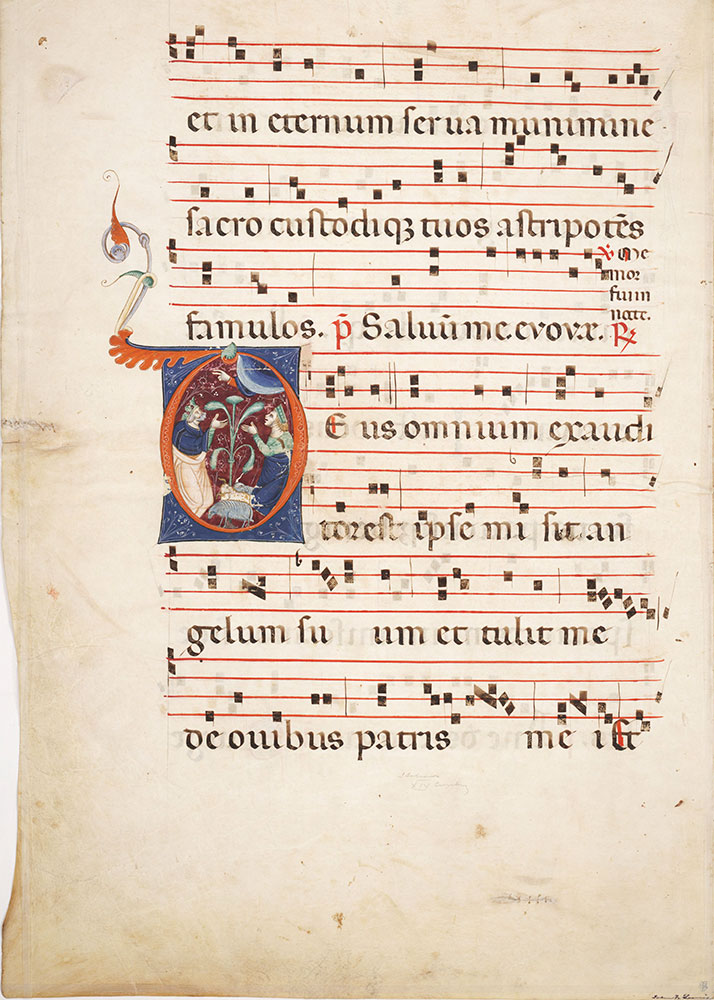 et in eternum serua munimine
sacro custodiqȝ tuos astripotēs
famulos. p̄ Saluū me. evovæ. ℣ Me
mor
fui in
nocte. ℟
Eus omnium exaudi
tor est ipse misit an
gelum suum et tulit me
de ouibus patris mei Et